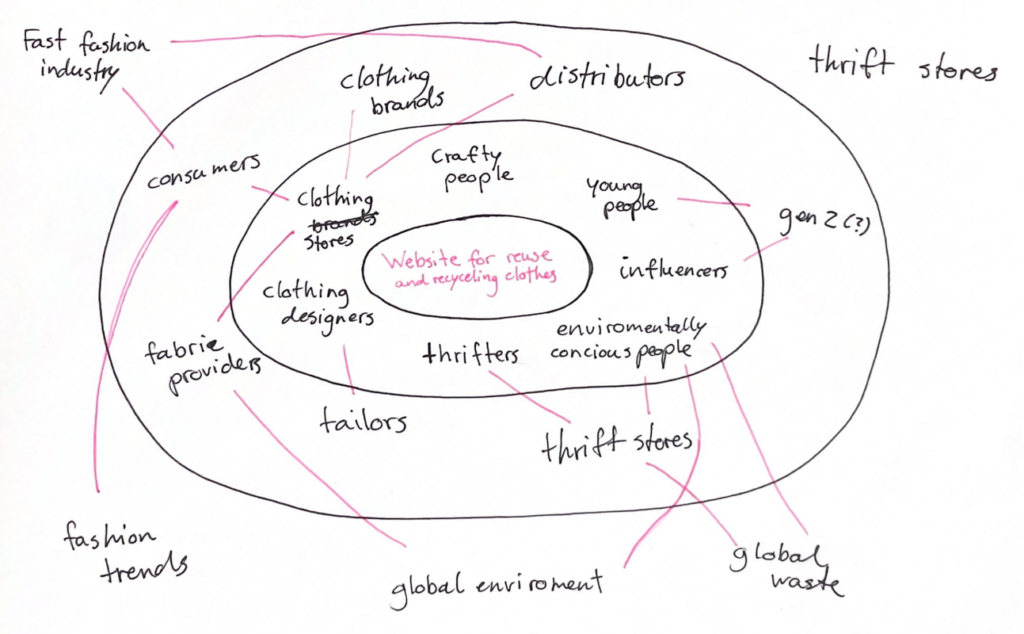 Fast fashion
industry
thrift stores
clothing
brands
distributors
consumers
Crafty
people
clothing
brands
stores
young
people
gen Z (?)
Website for reuse
and recyceling clothes
influencers
clothing
designers
enviromentally
concious people
fabric
providers
thrifters
tailors
thrift stores
fashion
trends
global enviroment
global
waste